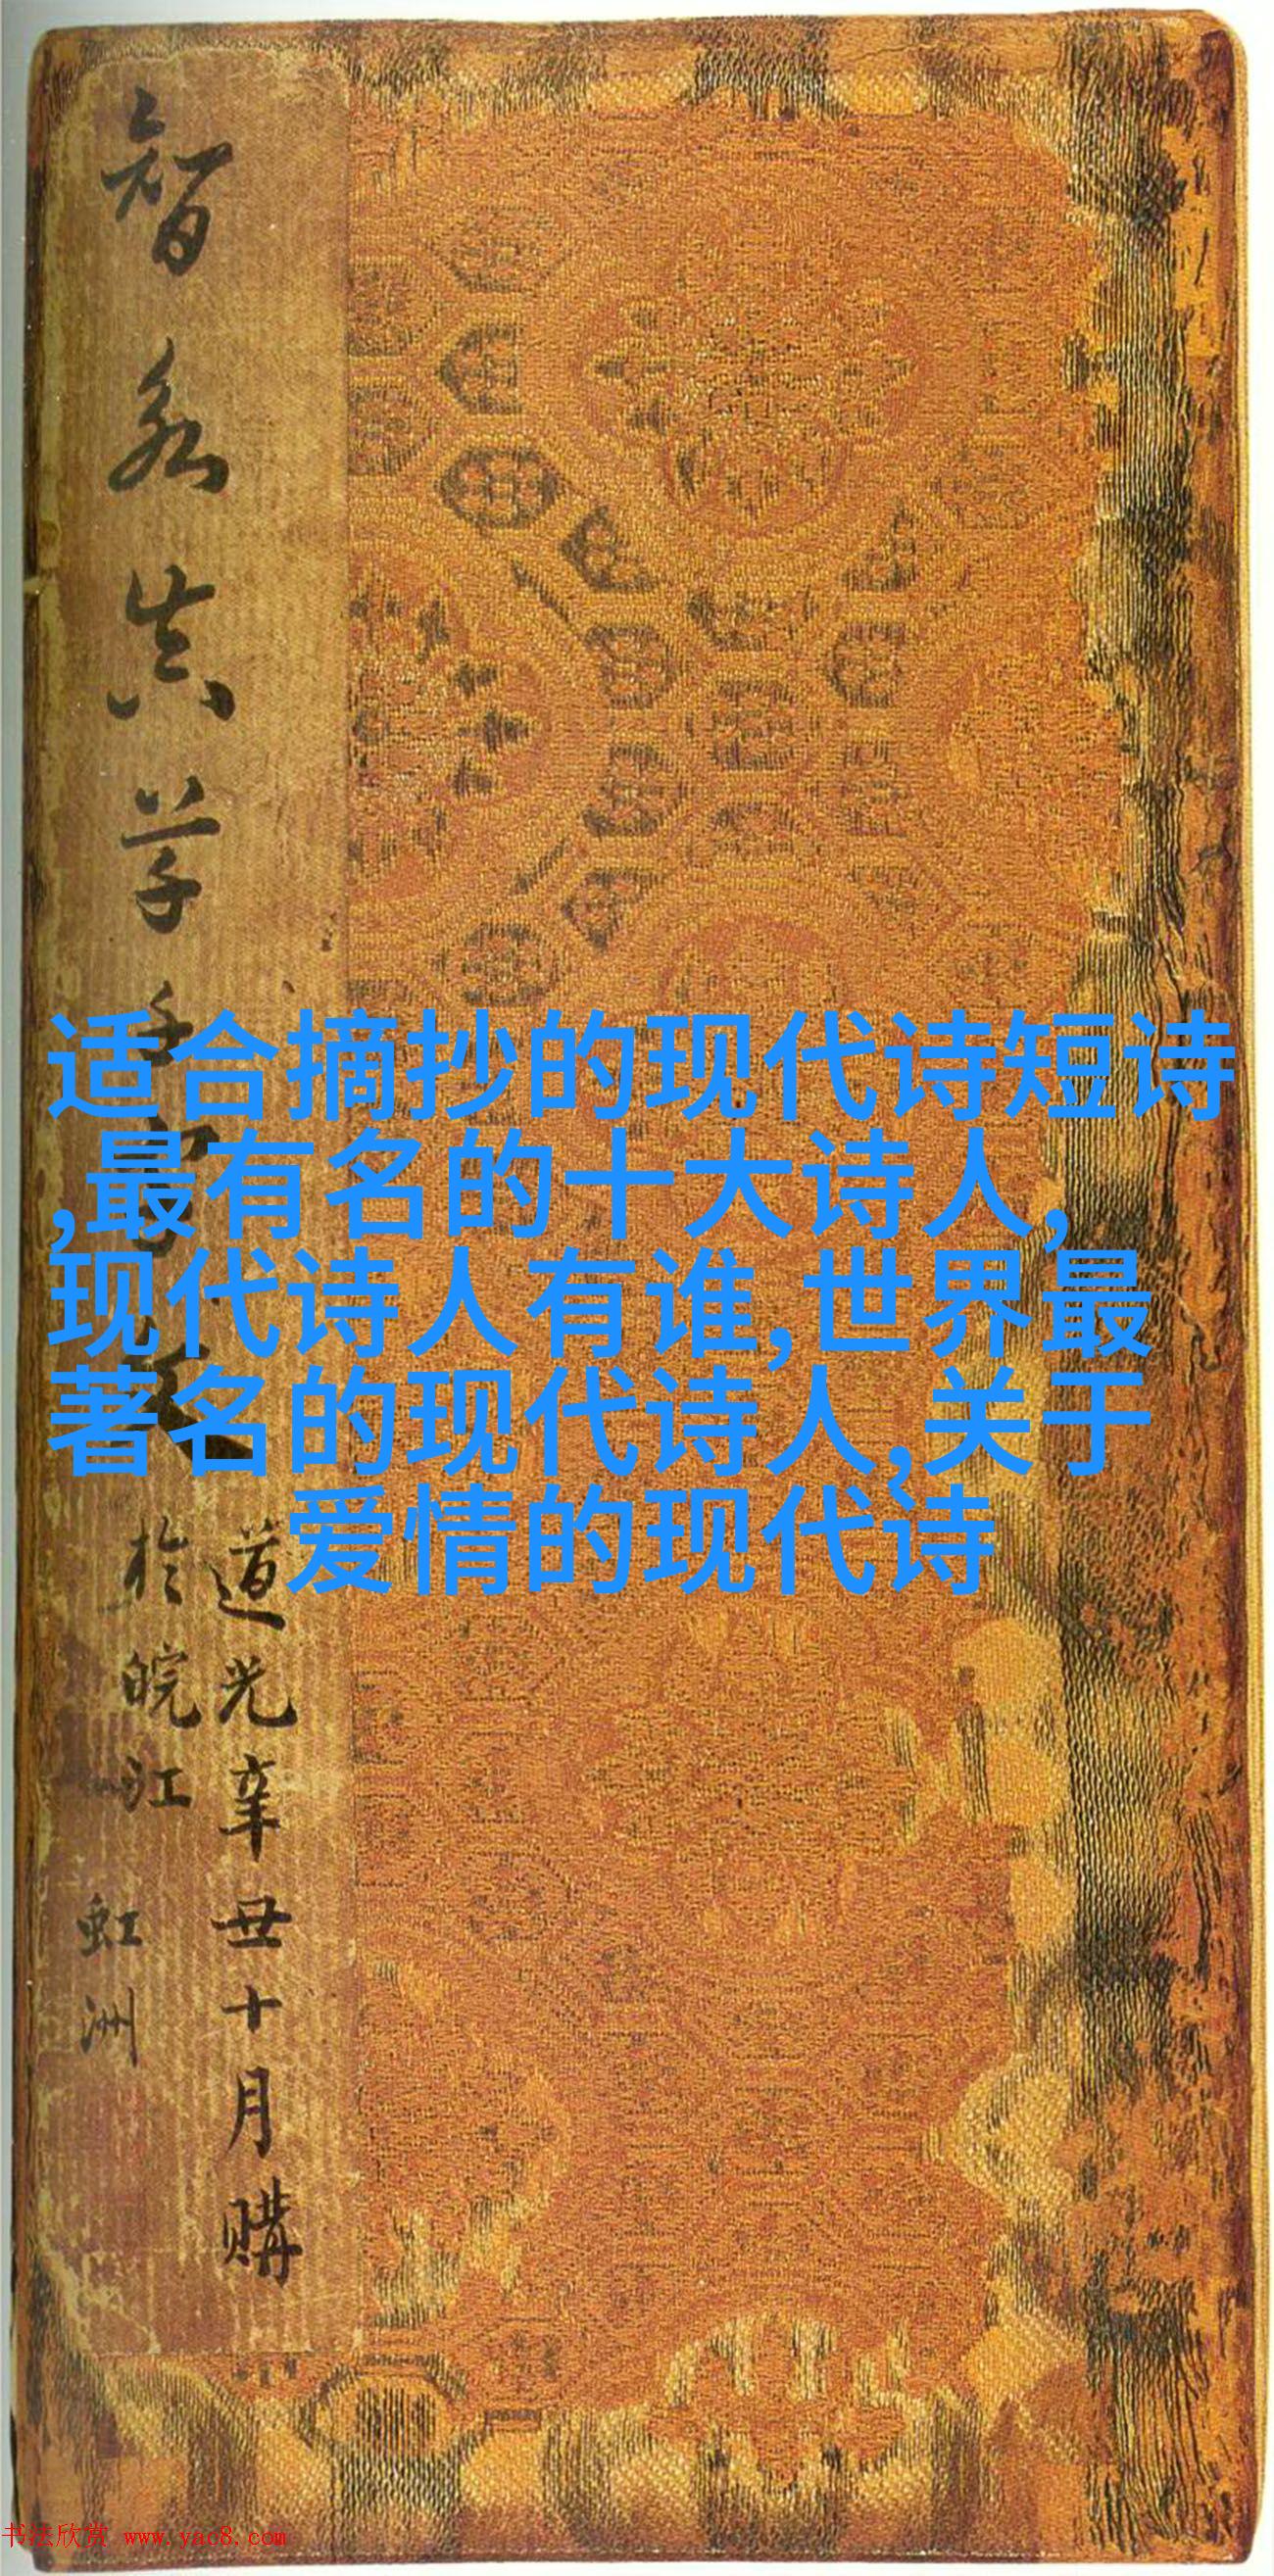 智永真草千
道光辛丑十月購
於皖江
虹洲
适合摘抄的现代诗短诗
,最有名的十大诗人,
现代诗人有谁,世界最
著名的现代诗人,关于
爱情的现代诗
书法欣赏 www.yac8.com